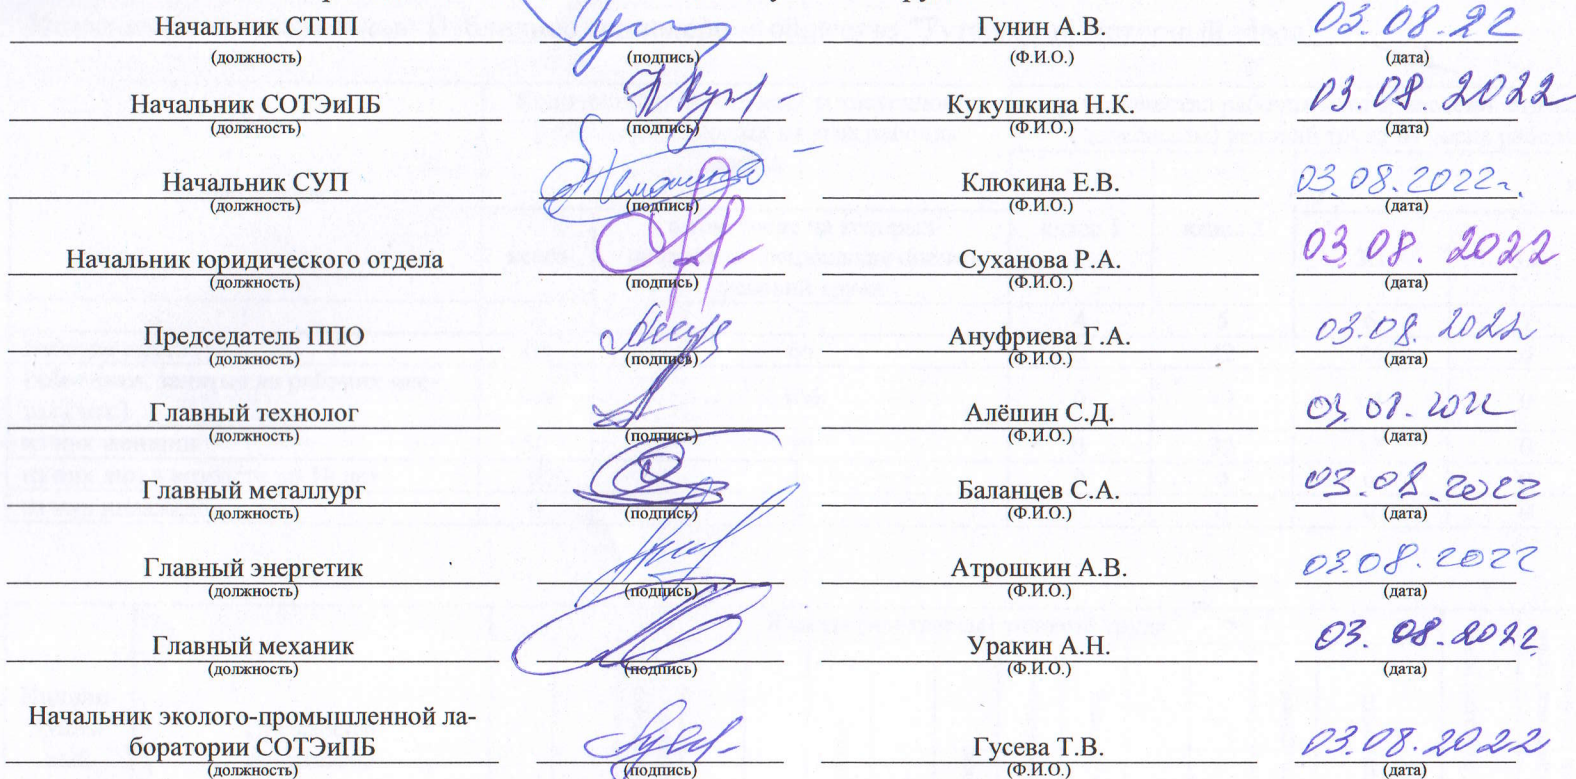 Начальник СТПП Гунин А.В. 03.08.22
(должность) (подпись) (Ф.И.О.) (дата)
Начальник СОТЭиПБ Кукушкина Н.К. 03.08.2022
(должность) (подпись) (Ф.И.О.) (дата)
Начальник СУП Клюкина Е.В. 03.08.2022г.
(должность) (подпись) (Ф.И.О.) (дата)
Начальник юридического отдела Суханова Р.А. 03.08.2022
(должность) (подпись) (Ф.И.О.) (дата)
Председатель ППО Ануфриева Г.А. 03.08.2022
(должность) (подпись) (Ф.И.О.) (дата)
Главный технолог Алёшин С.Д. 03.08.2022
(должность) (подпись) (Ф.И.О.) (дата)
Главный металлург Баланцев С.А. 03.08.2022
(должность) (подпись) (Ф.И.О.) (дата)
Главный энергетик Атрошкин А.В. 03.08.2022
(должность) (подпись) (Ф.И.О.) (дата)
Главный механик Уракин А.Н. 03.08.2022
(должность) (подпись) (Ф.И.О.) (дата)
Начальник эколого-промышленной ла-
боратории СОТЭиПБ Гусева Т.В. 03.08.2022
(должность) (подпись) (Ф.И.О.) (дата)